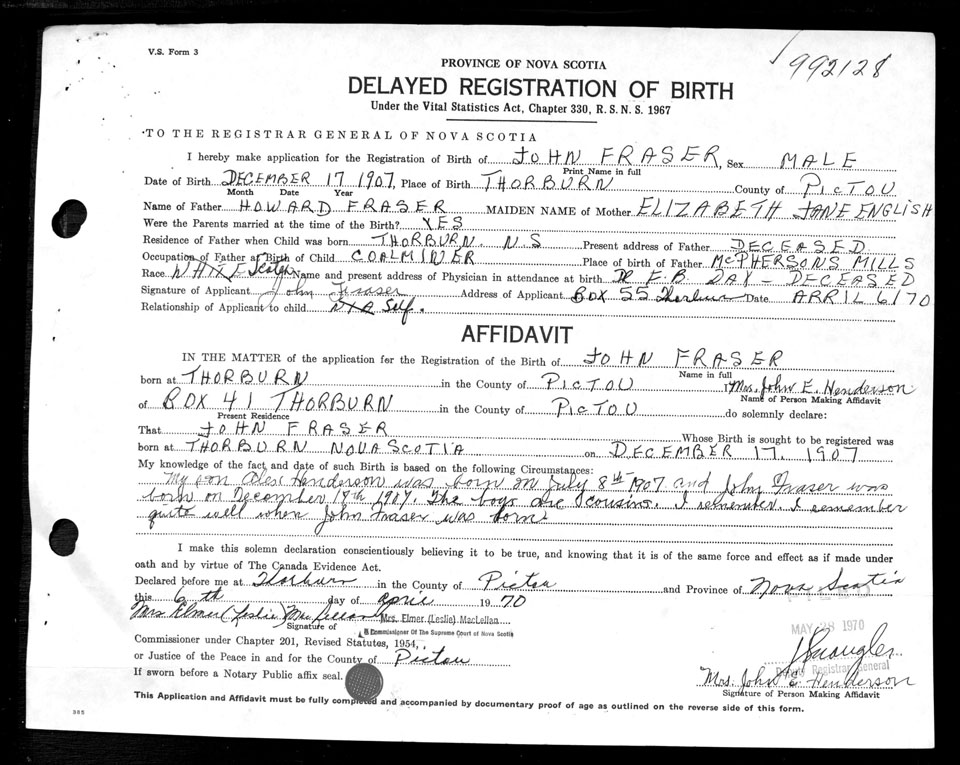 V.S. Form 3
992128
PROVINCE OF NOVA SCOTIA
DELAYED REGISTRATION OF BIRTH
Under the Vital Statistics Act, Chapter 330, R.S.N.S. 1967
TO THE REGISTRAR GENERAL OF NOVA SCOTIA
I hereby make application for the Registration of Birth of JOHN FRASER, Sex MALE
Print Name in full
Date of Birth DECEMBER 17 1907, Place of Birth THORBURN County of PICTOU
Month Date Year
Name of Father HOWARD FRASER MAIDEN NAME of Mother ELIZABETH JANE ENGLISH
Were the Parents married at the time of the Birth? YES
Residence of Father when Child was born THORBURN. N.S Present address of Father DECEASED
Occupation of Father at Birth of Child COALMINER Place of birth of Father McPHERSONS MILLS
Race WHITE Scotch Name and present address of Physician in attendance at birth DR E.B. DAY - DECEASED
Signature of Applicant John Fraser Address of Applicant BOX 55 Thorburn Date APRIL 6/70
Relationship of Applicant to child Self.
AFFIDAVIT
IN THE MATTER of the application for the Registration of the Birth of JOHN FRASER
Name in full
born at THORBURN in the County of PICTOU I Mrs. John E. Henderson
Name of Person Making Affidavit
of BOX 41 THORBURN in the County of PICTOU do solemnly declare:
Present Residence
That JOHN FRASER Whose Birth is sought to be registered was
born at THORBURN NOVA SCOTIA on DECEMBER 17, 1907
My knowledge of the fact and date of such Birth is based on the following Circumstances:
My son Alex Henderson was born on July 8th 1907 and John Fraser was
born on December 17th 1907. The boys are cousins. I remember. I remember
quite well when John Fraser was born.
I make this solemn declaration conscientiously believing it to be true, and knowing that it is of the same force and effect as if made under
oath and by virtue of The Canada Evidence Act.
Declared before me at Thorburn in the County of Pictou and Province of Nova Scotia
this 6th day of April 1970
Mrs Elmer (Leslie) MacLellan Mrs. Elmer (Leslie) MacLellan
Signature of
A Commissioner Of The Supreme Court of Nova Scotia
Commissioner under Chapter 201, Revised Statutes, 1954,
MAY 28 1970
or Justice of the Peace in and for the County of Pictou
Deputy Registrar General
If sworn before a Notary Public affix seal.
Mrs. John E. Henderson
Signature of Person Making Affidavit
This Application and Affidavit must be fully completed and accompanied by documentary proof of age as outlined on the reverse side of this form.
385